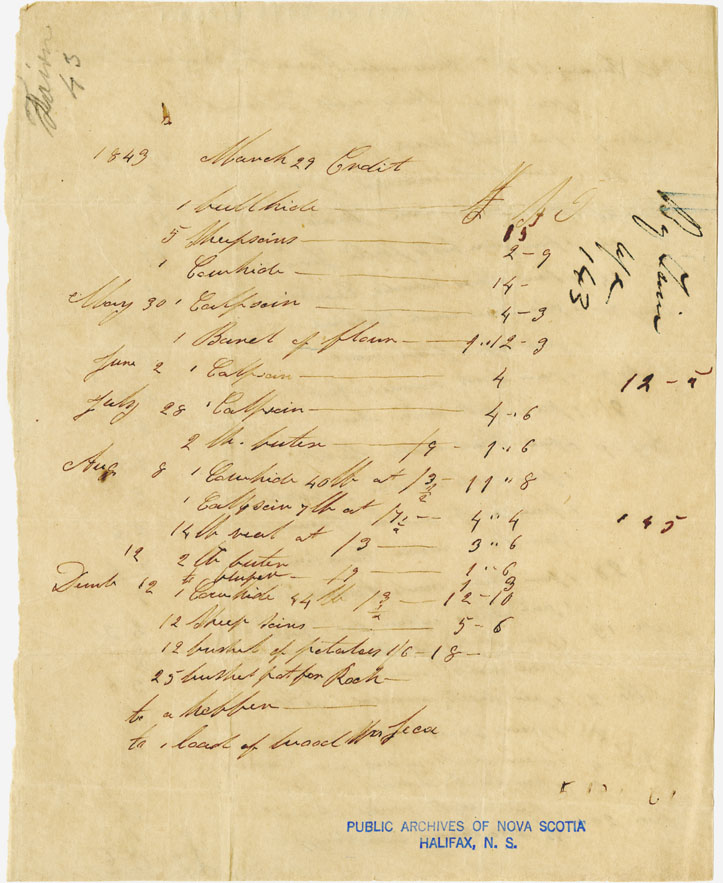 43
1843 March 29 Credit
£ S D
1 bullhide 15
5 Sheepscins 2-9
1 Cowhide 14-
May 30 1 Calfscin 4-3
1 Barel of flour 1"12-3
June 2 1 Calfscin 4
12-
July 28 1 Calfscin 4"6
2 lb. buter /9 - 1"6
Aug 8 1 Cowhide 40lb at /3½ - 11"8
1 Calfscin 7lb at /7½ 4"4
14lb veal at /3 3"6
12 2 lb buter /9 1"6
1 3
Decmb 12 1 Cowhide 44lb /3½ 12-10
12 Sheep scins 5-6
12 bushel of potatoes 1/6 - 18-
25 bushel pot for Rock
to a
to 1 load of wood
143
PUBLIC ARCHIVES OF NOVA SCOTIA
HALIFAX, N. S.